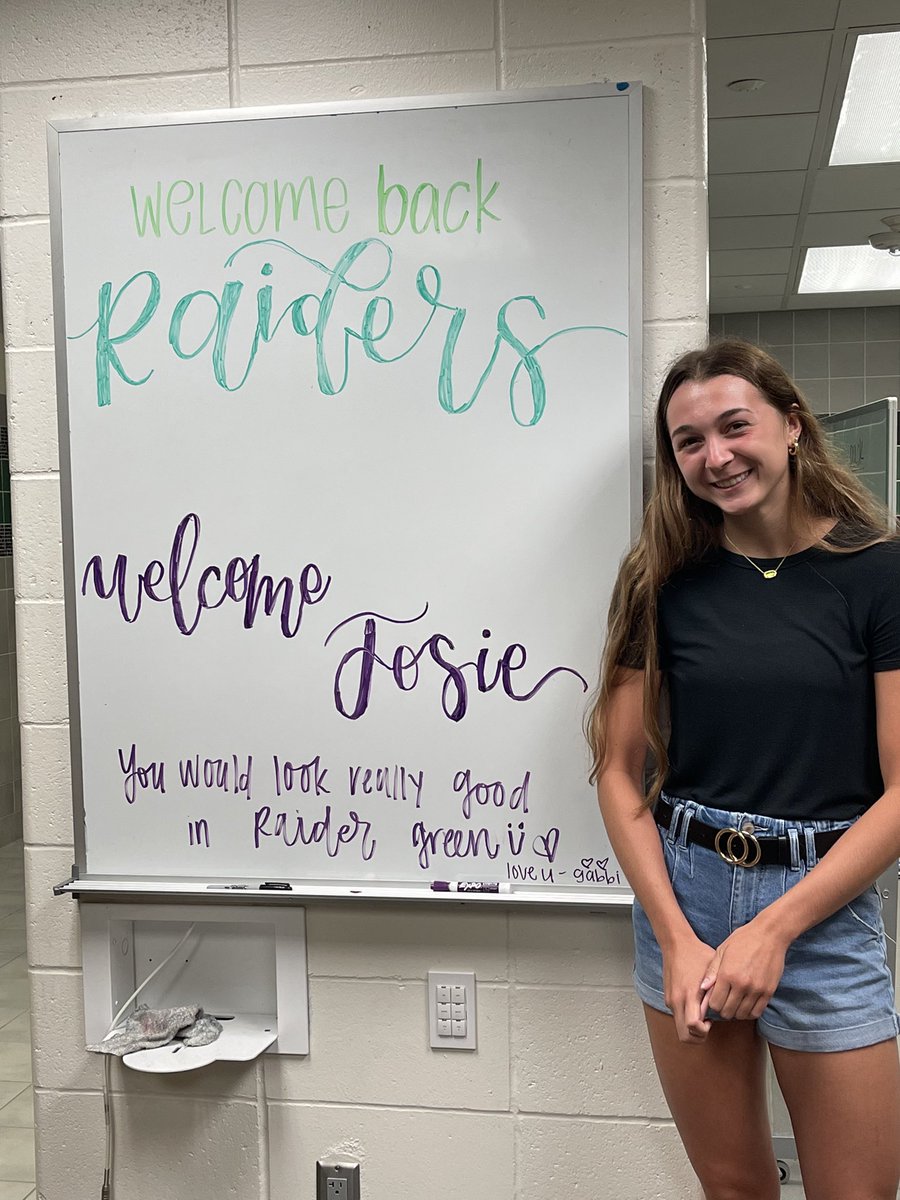 welcome back
Raiders
welcome
Josie
You would look really good
in Raider green
love u - gabbi